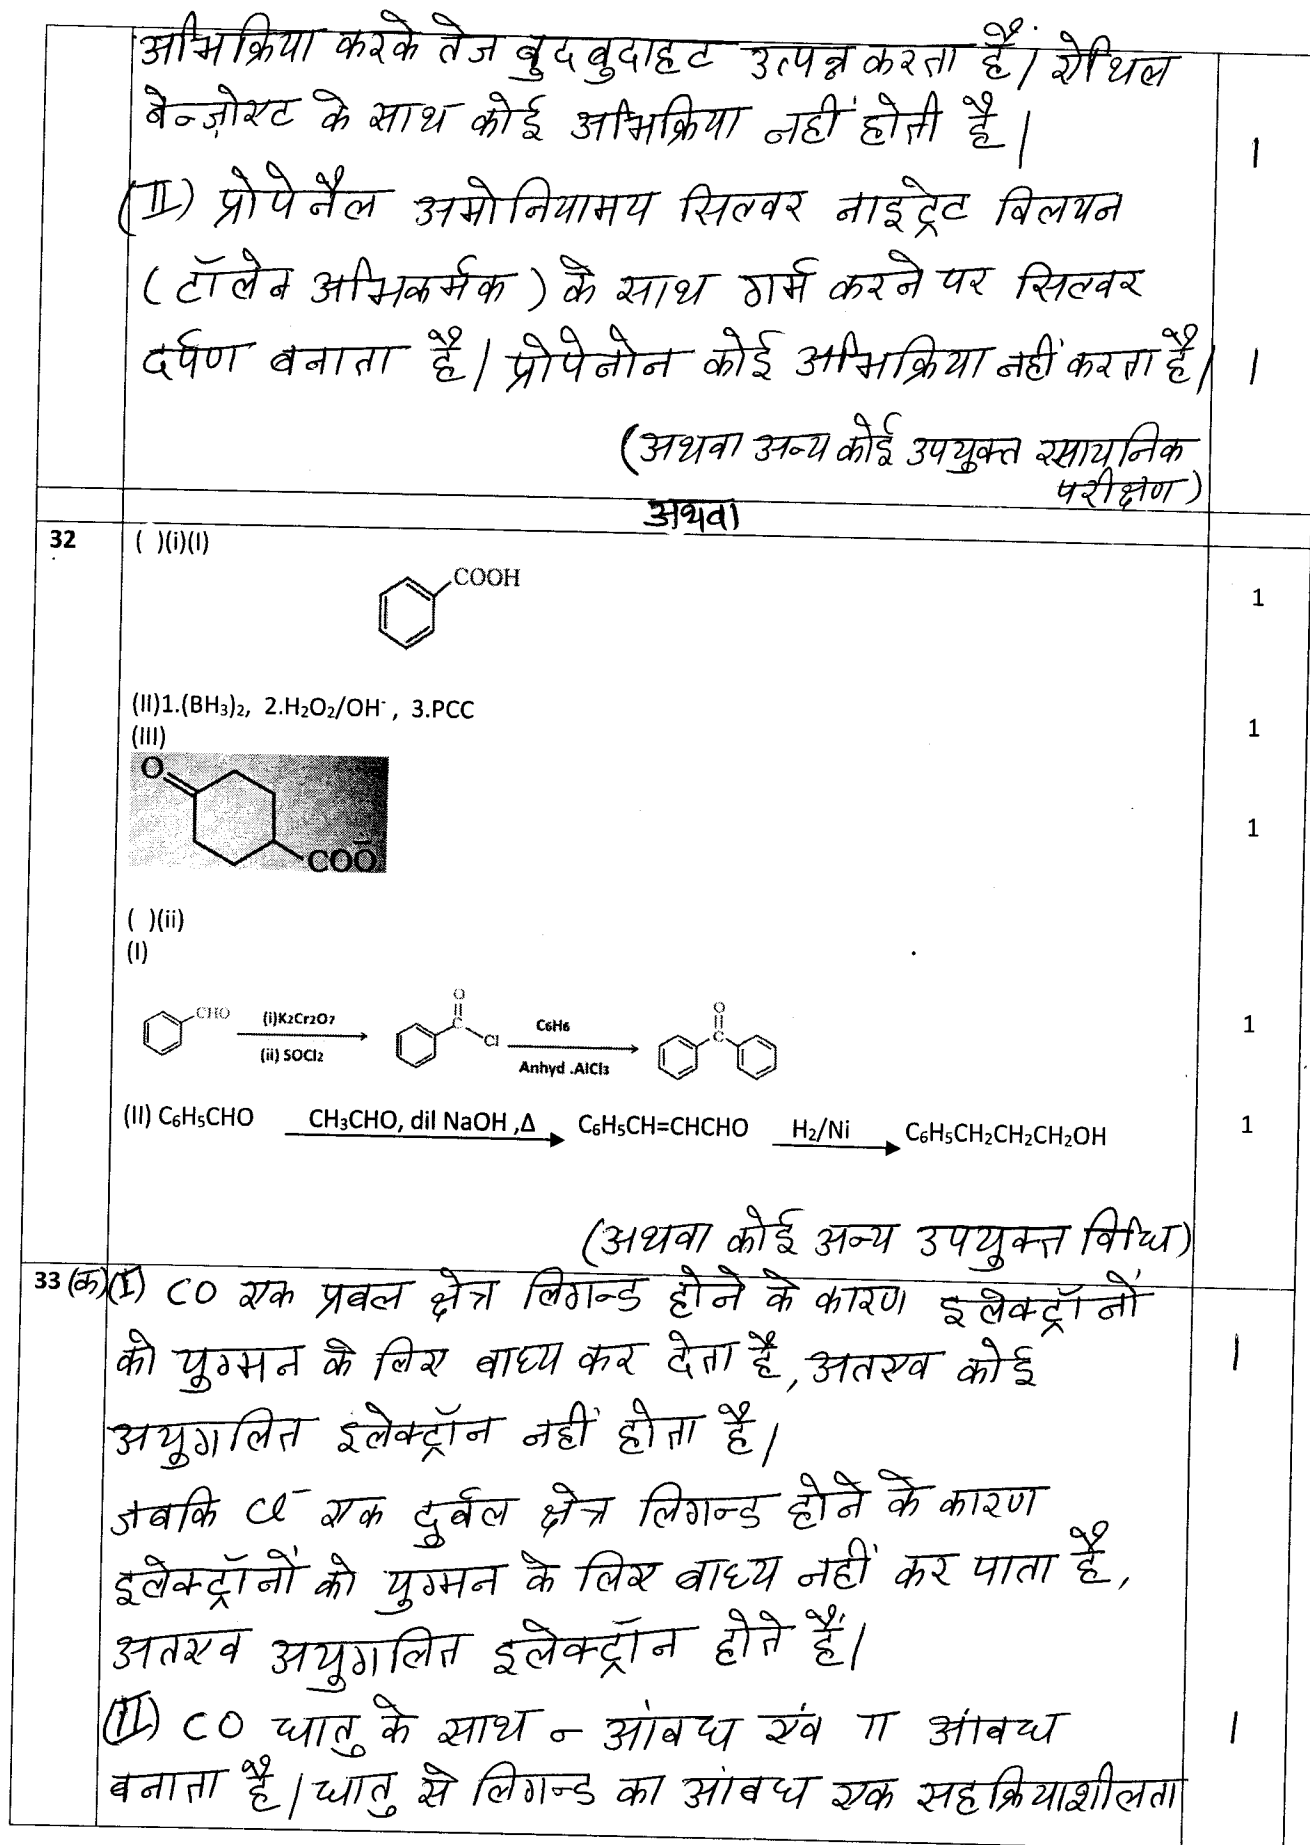 अभिक्रिया करके तेज बुदबुदाहट उत्पन्न करता है। एथिल
बेन्ज़ोएट के साथ कोई अभिक्रिया नहीं होती है।
1
(II) प्रोपेनैल अमोनियामय सिल्वर नाइट्रेट विलयन
(टॉलेन अभिकर्मक) के साथ गर्म करने पर सिल्वर
दर्पण बनाता है। प्रोपेनोन कोई अभिक्रिया नहीं करता है। 1
(अथवा अन्य कोई उपयुक्त रसायनिक
परीक्षण)
अथवा
32 ( )(i)(I)
COOH 1
(II)1.(BH₃)₂, 2.H₂O₂/OH⁻, 3.PCC 1
(III)
O
COO⁻ 1
( )(ii)
(I)
CHO (i)K₂Cr₂O₇ (ii) SOCl₂ O C Cl C₆H₆ Anhyd .AlCl₃ O C 1
(II) C₆H₅CHO CH₃CHO, dil NaOH ,Δ C₆H₅CH=CHCHO H₂/Ni C₆H₅CH₂CH₂CH₂OH 1
(अथवा कोई अन्य उपयुक्त विधि)
33 (क)(I) CO एक प्रबल क्षेत्र लिगन्ड होने के कारण इलेक्ट्रॉनों
को युग्मन के लिए बाध्य कर देता है, अतएव कोई 1
अयुगलित इलेक्ट्रॉन नहीं होता है।
जबकि Cl⁻ एक दुर्बल क्षेत्र लिगन्ड होने के कारण
इलेक्ट्रॉनों को युग्मन के लिए बाध्य नहीं कर पाता है,
अतएव अयुगलित इलेक्ट्रॉन होते हैं।
(II) CO धातु के साथ σ आंबध एंव π आंबध 1
बनाता है। धातु से लिगन्ड का आंबध एक सहक्रियाशीलता